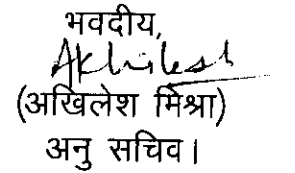 भवदीय,
Akhilesh
(अखिलेश मिश्रा)
अनु सचिव।